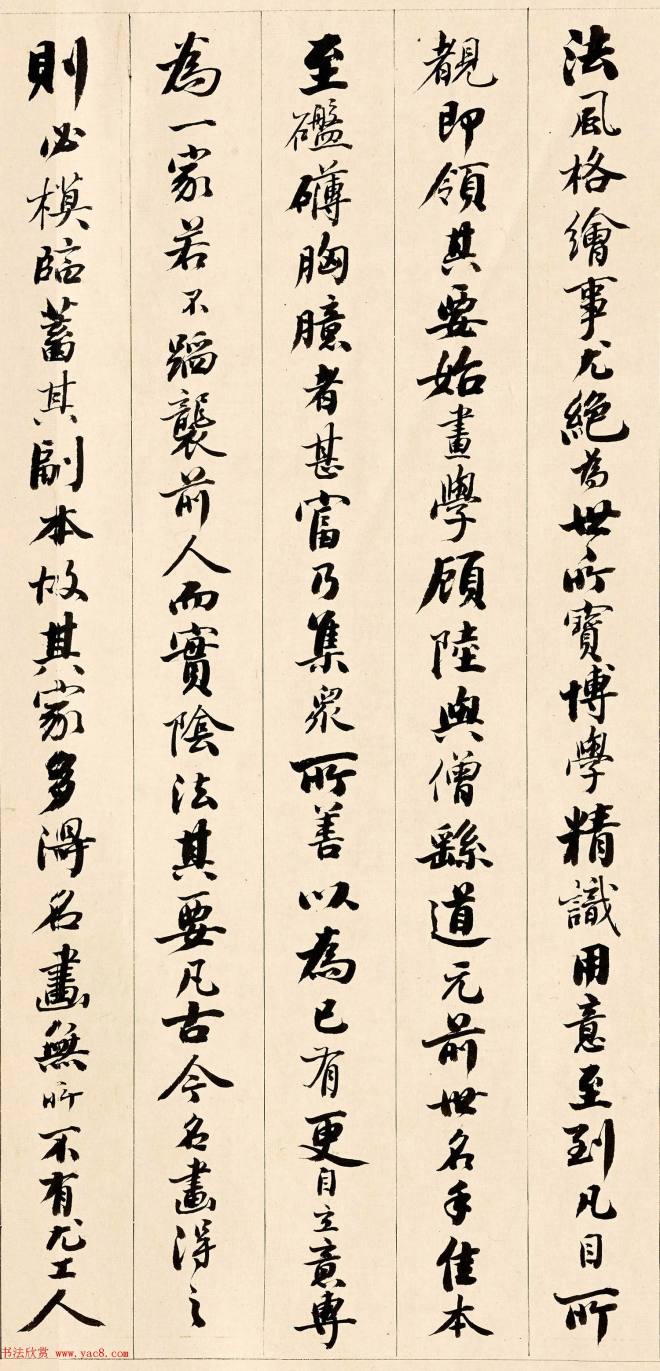 法風格繪事尤絕為世所寶博學精識用意至到凡目所
覩即領其要始畫學顧陸與僧繇道元前世名手佳本
至礛礴胸臆者甚富乃集眾所善以為己有更自立意專
為一家若不蹈襲前人而實陰法其要凡古今名畫得之
則必模臨蓄其副本故其家多得名畫無所不有尤工人
书法欣赏 www.yac8.com